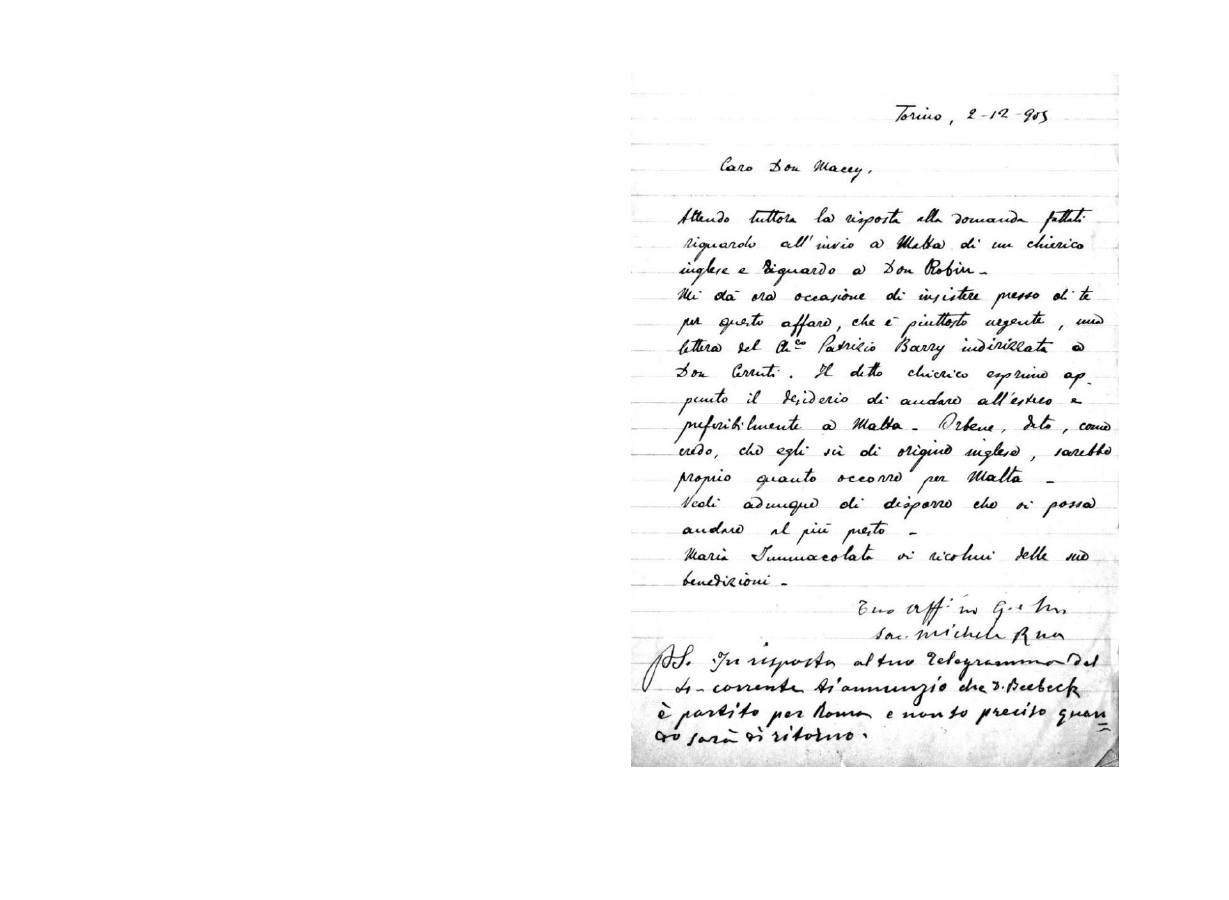 Torino, 2-12-905
Caro Don Macey,
Attendo tuttora la risposta alla domanda fattati
riguardo all'invio a Malta di un chierico
inglese e riguardo a Don Robin -
Mi dà ora occasione di insistere presso di te
per questo affare, che è piuttosto urgente, una
lettera del Ch.co Patrizio Barry indirizzata a
Don Cerruti. Il detto chierico esprime ap-
punto il desiderio di andare all'estero e
preferibilmente a Malta - Orbene, dato, come
credo, che egli sia di origine inglese, sarebbe
proprio quanto occorre per Malta -
Vedi adunque di disporre che vi possa
andare al più presto -
Maria Immacolata vi ricolmi delle sue
benedizioni -
Tuo aff.mo in G. e
Sac. Michele Rua
PS. In risposta al tuo Telegramma del
4 - corrente ti annunzio che D. Beebeck
è partito per Roma e non so preciso quan=
do sarà di ritorno.